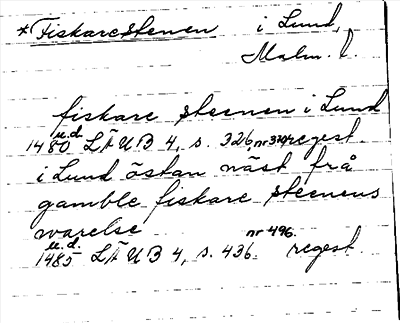 *Fiskarestenen i Lund,
Malm. l.
fiskare steenen i Lund
u.d.
1480 LÄUB 4, s. 326, nr regest.
i Lund östan näst frå
gamble fiskare steenens
warelse
u.d. nr 496.
1485 LÄUB 4, s. 436. regest